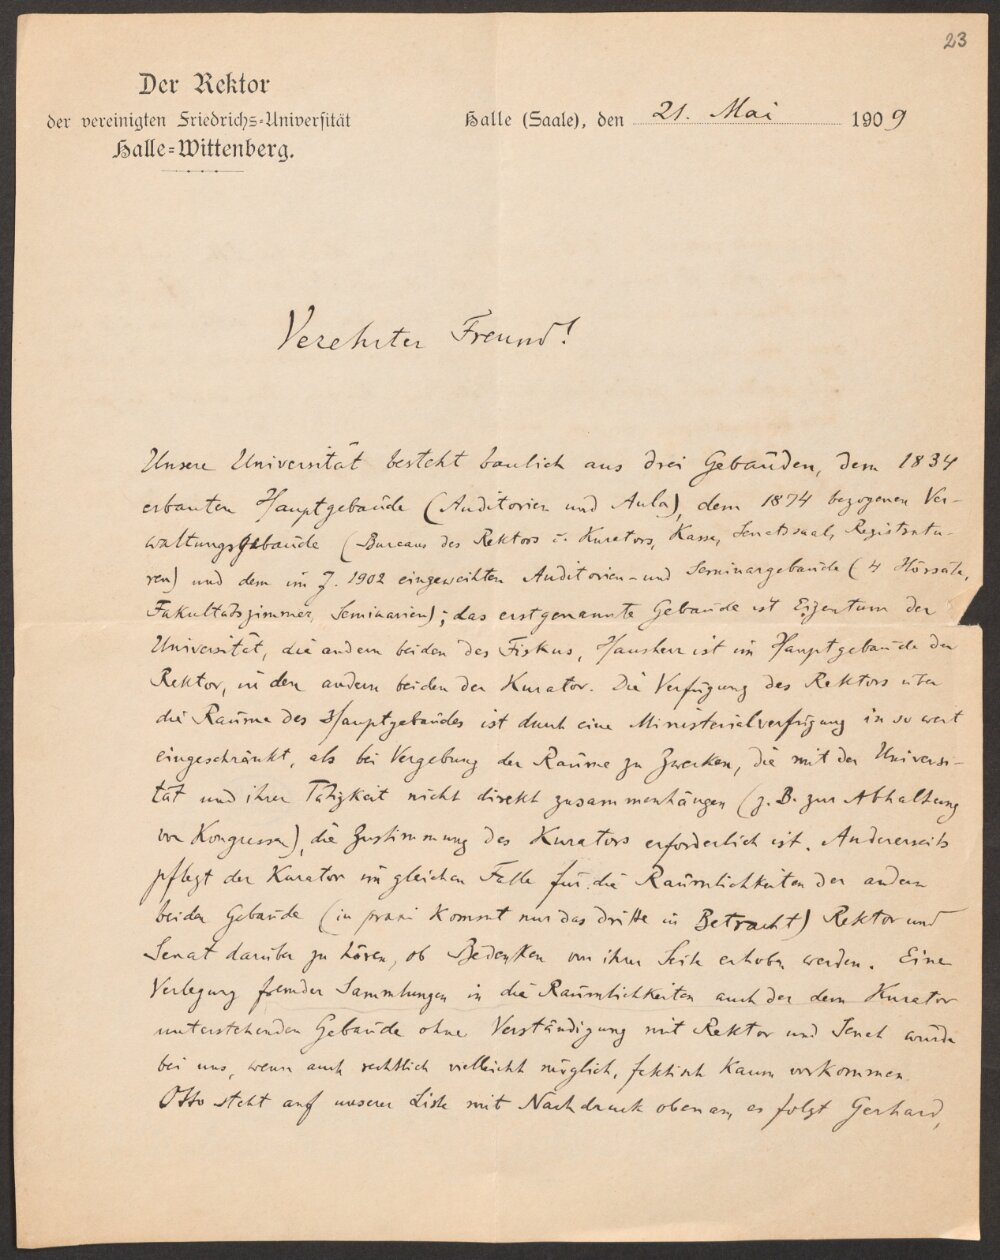 23
Der Rektor
der vereinigten Friedrichs-Universität
Halle-Wittenberg.
Halle (Saale), den 21. Mai 1909
Verehrter Freund!
Unsere Universität besteht baulich aus drei Gebäuden, dem 1834
erbauten Hauptgebäude (Auditorien und Aula), dem 1874 bezogenen Ver-
waltungsgebäude (Bureaus des Rektors u. Kurators, Kasse, Senatssaal, Registratu-
ren) und dem im J. 1902 eingeweihten Auditorien- und Seminargebäude (4 Hörsäle,
Fakultätszimmer, Seminarien); das erstgenannte Gebäude ist Eigentum der
Universität, die andern beiden des Fiskus, Hausherr ist im Hauptgebäude der
Rektor, in den andern beiden der Kurator. Die Verfügung des Rektors über
die Räume des Hauptgebäudes ist durch eine Ministerialverfügung in so weit
eingeschränkt, als bei Vergebung der Räume zu Zwecken, die mit der Universi-
tät und ihrer Tätigkeit nicht direkt zusammenhängen (z. B. zur Abhaltung
von Kongressen), die Zustimmung des Kurators erforderlich ist. Andererseits
pflegt der Kurator im gleichen Falle für die Räumlichkeiten der andern
beiden Gebäude (in praxi kommt nur das dritte in Betracht) Rektor und
Senat darüber zu hören, ob Bedenken von ihrer Seite erhoben werden. Eine
Verlegung fremder Sammlungen in die Räumlichkeiten auch der dem Kurator
unterstehenden Gebäude ohne Verständigung mit Rektor und Senat würde
bei uns, wenn auch rechtlich vielleicht möglich, faktisch kaum vorkommen.
Otto steht auf unserer Liste mit Nachdruck obenan, es folgt Gerhard,